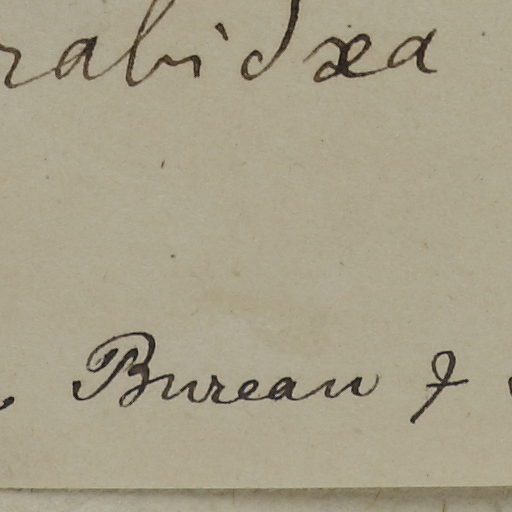 rabidæa
. Bureau &